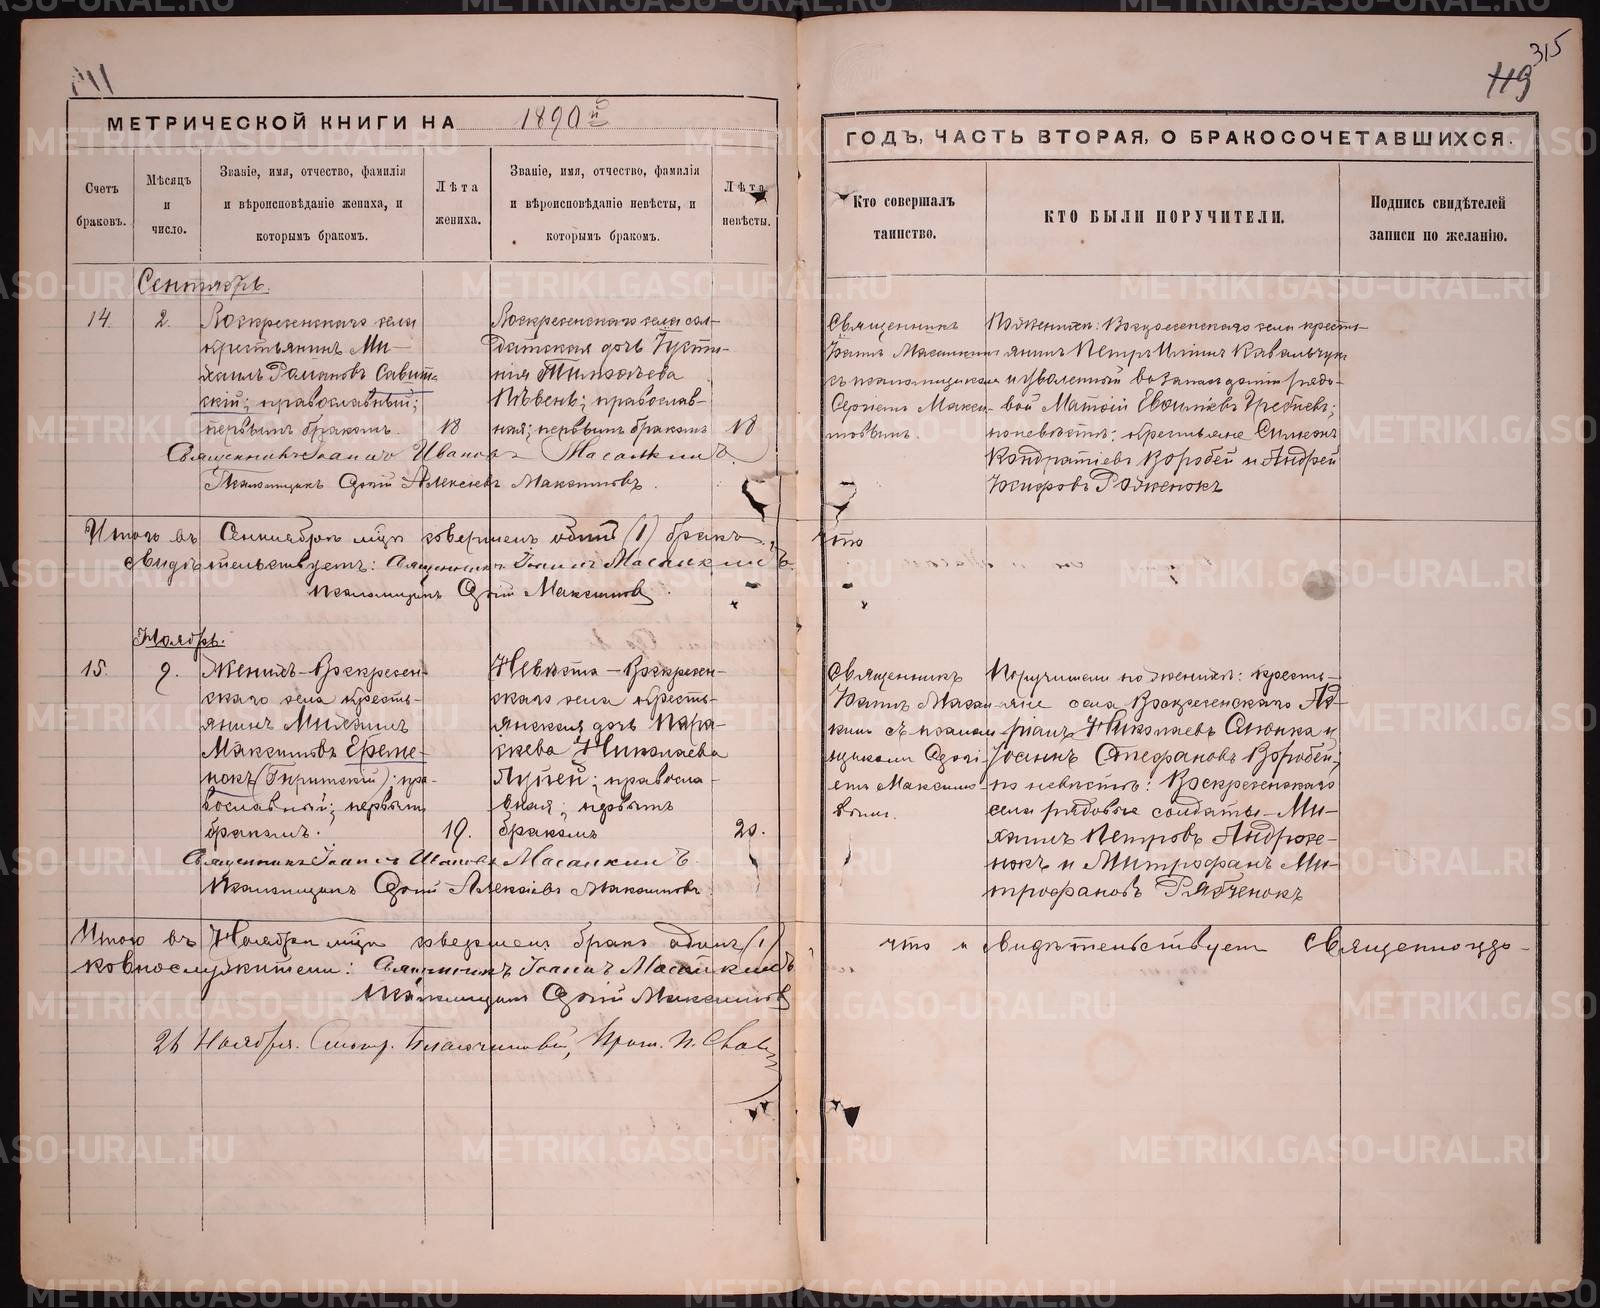 315
119
МЕТРИЧЕСКОЙ КНИГИ НА 1890й
ГОДЪ, ЧАСТЬ ВТОРАЯ, О БРАКОСОЧЕТАВШИХСЯ.
Счетъ браковъ.
Мѣсяцъ и число.
Званіе, имя, отчество, фамилія и вѣроисповѣданіе жениха, и которымъ бракомъ.
Лѣта жениха.
Званіе, имя, отчество, фамилія и вѣроисповѣданіе невѣсты, и которымъ бракомъ.
Лѣта невѣсты.
Кто совершалъ таинство.
КТО БЫЛИ ПОРУЧИТЕЛИ.
Подпись свидѣтелей записи по желанію.
Сентябрь.
14.
2.
Воскресенскаго села
крестьянинъ Ми-
хаилъ Романовъ Савит-
скій; православный;
первымъ бракомъ.
18
Воскресенскаго села сол-
датская дочь Іусти-
нія Тимофеева
Пѣвень; православ-
ная; первымъ бракомъ
18
Священникъ
Іоаннъ Масалкинъ
съ псаломщикомъ
Сергіемъ Макси-
мовымъ.
По женихѣ: Воскресенскаго села кресть-
янинъ Петръ Ильинъ Кавальчук
и уволенный въ запас арміи рядо-
вой Матфій Евфиміевъ Гребнев;
по невѣстѣ: крестьяне Симеонъ
Кондратіевъ Воробей и Андрей
Роженокъ
Священникъ Іоаннъ Ивановъ Масалкинъ.
Псаломщикъ Сергій Алексѣевъ Максимовъ.
Итого въ Сентябрѣ мѣц совершенъ одинъ (1) бракъ, что
свидѣтельствуетъ: Священникъ Іоаннъ Масалкинъ.
Псаломщикъ Сергій Максимовъ.
Ноябрь.
15.
9.
Женихъ - Воскресен-
скаго села кресть-
янинъ Михаилъ
Максимовъ Ереме-
нокъ (Гиритскій); пра-
вославный; первымъ
бракомъ.
19.
Невѣста - Воскресен-
скаго села кресть-
янская дочь Пара-
скева Николаева
Лупей; правосла-
вная; первымъ
бракомъ
20.
Священникъ
Іоаннъ Масал-
кинъ съ псалом-
щикомъ Сергі-
емъ Максимо-
вымъ.
Поручители по женихѣ: кресть-
яне села Воскресенскаго Ад-
ріанъ Николаевъ Слюнка и
Іоаннъ Стефановъ Воробей;
по невѣстѣ: Воскресенскаго
села рядовые солдаты - Ми-
хаилъ Петровъ Андросе-
нокъ и Митрофанъ Ми-
трофановъ Рябченокъ
Священникъ Іоаннъ Ивановъ Масалкинъ.
Псаломщикъ Сергій Алексѣевъ Максимовъ.
Итого въ Ноябрѣ мѣц совершенъ бракъ одинъ (1) что и свидѣтельствуетъ священноцер-
ковнослужители: Священникъ Іоаннъ Масалкинъ
Псаломщикъ Сергій Максимовъ
Ноября. Смотр. Благочинный, Прот. П.
METRIKI.GASO-URAL.RU